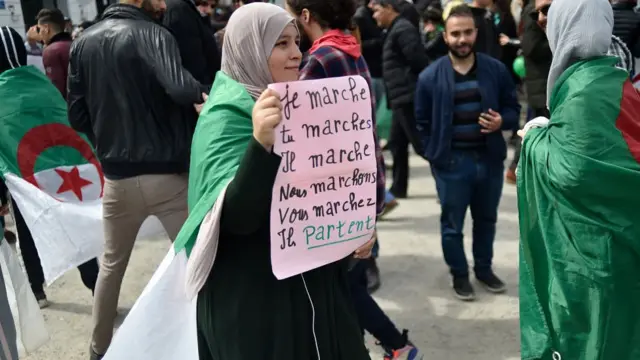 je marche
tu marches
Il marche
Nous marchons
Vous marchez
Il Partent